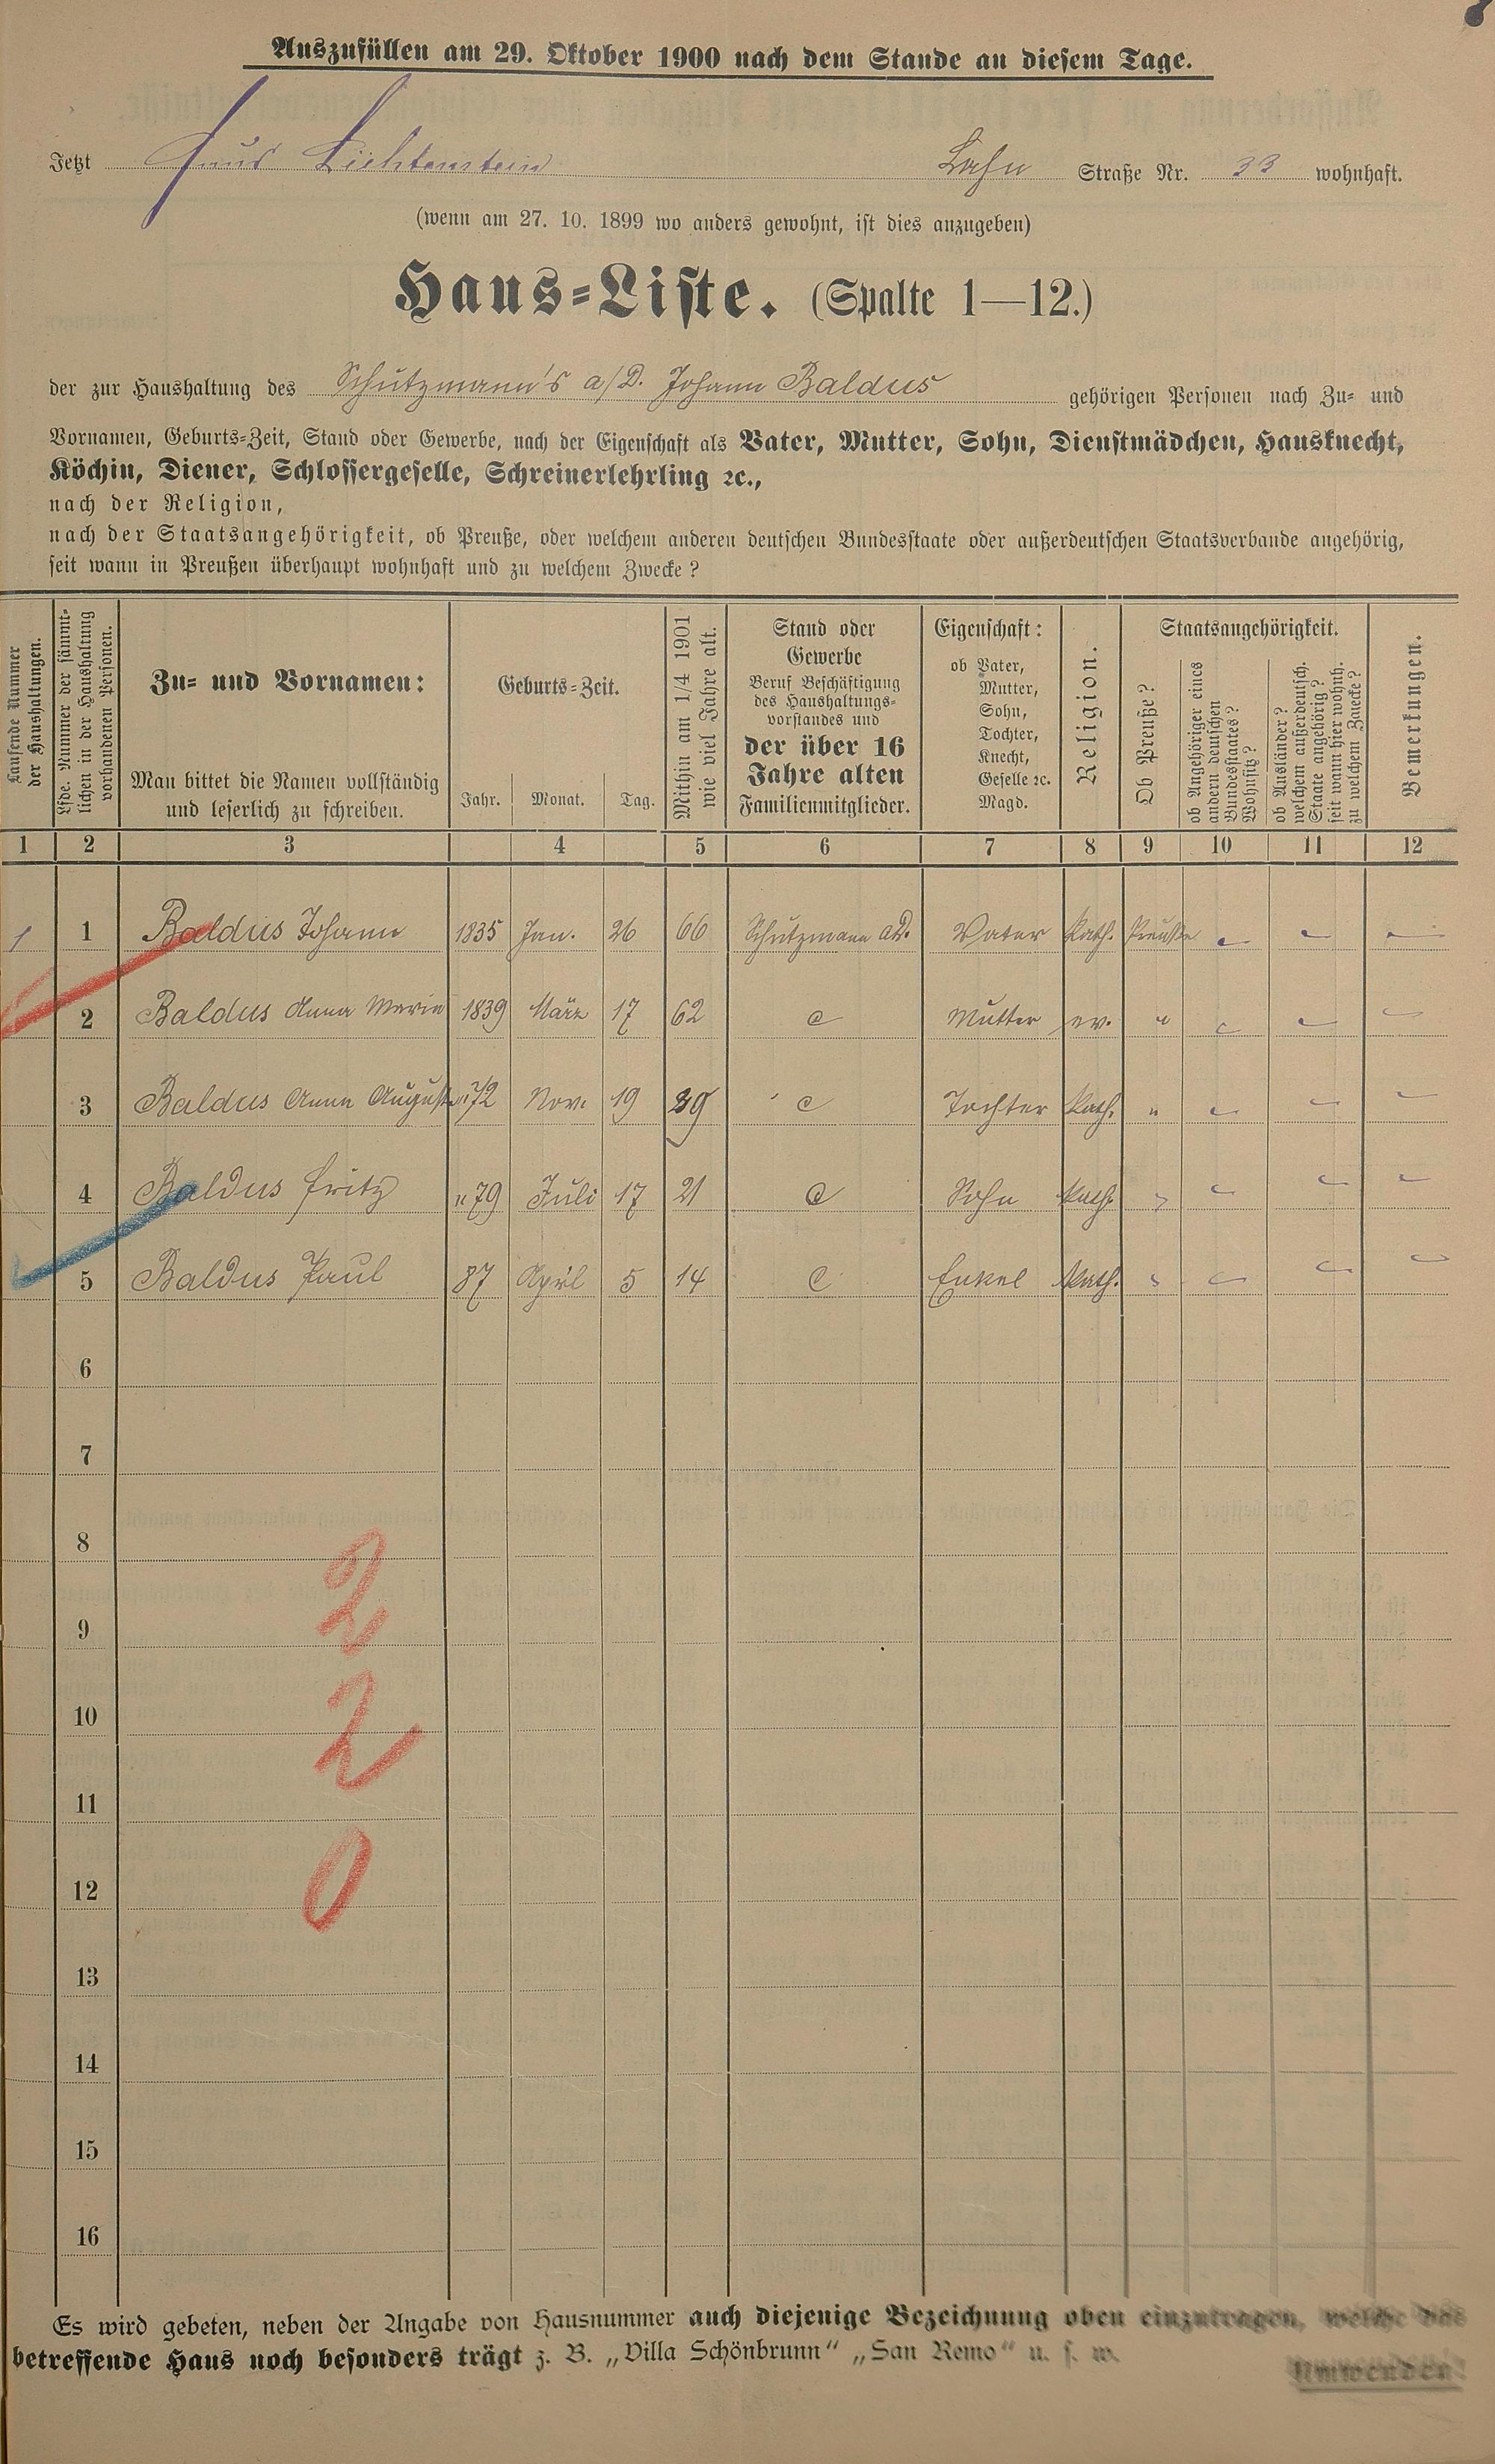 Auszufüllen am 29. Oktober 1900 nach dem Stande an diesem Tage.
Jetzt Haus Lichtenstein Lahn Straße Nr. 33 wohnhaft.
(wenn am 27. 10. 1899 wo anders gewohnt, ist dies anzugeben)
Haus-Liste. (Spalte 1—12.)
der zur Haushaltung des Schutzmann's a/D. Johann Baldus gehörigen Personen nach Zu- und
Vornamen, Geburts-Zeit, Stand oder Gewerbe, nach der Eigenschaft als Vater, Mutter, Sohn, Dienstmädchen, Hausknecht,
Köchin, Diener, Schlossergeselle, Schreinerlehrling ꝛc.,
nach der Religion,
nach der Staatsangehörigkeit, ob Preuße, oder welchem anderen deutschen Bundesstaate oder außerdeutschen Staatsverbande angehörig,
seit wann in Preußen überhaupt wohnhaft und zu welchem Zwecke?
Laufende Nummer
der Haushaltungen.
Lfde. Nummer der sämmt-
lichen in der Haushaltung
vorhandenen Personen.
Zu- und Vornamen:
Man bittet die Namen vollständig
und leserlich zu schreiben.
Geburts-Zeit.
Jahr. Monat. Tag.
Mithin am 1/4 1901
wie viel Jahre alt.
Stand oder
Gewerbe
Beruf Beschäftigung
des Haushaltungs-
vorstandes und
der über 16
Jahre alten
Familienmitglieder.
Eigenschaft:
ob Vater,
Mutter,
Sohn,
Tochter,
Knecht,
Geselle ꝛc.
Magd.
Religion.
Staatsangehörigkeit.
Ob Preuße?
ob Angehöriger eines
andern deutschen
Bundesstaates?
Wohnsitz?
ob Ausländer?
welchem außerdeutsch.
Staate angehörig?
seit wann hier wohnh.
zu welchem Zwecke?
Bemerkungen.
1 2 3 4 5 6 7 8 9 10 11 12
1 1 Baldus Johann 1835 Jan. 26 66 Schutzmann a.D. Vater Kath. Preuße
2 Baldus Anna Maria 1839 März 17 62 Mutter ev. "
3 Baldus Anna Auguste "72 Nov. 19 29 Tochter Kath. "
4 Baldus Fritz "79 Juli 17 21 Sohn Kath. "
5 Baldus Paul 87 April 5 14 Enkel Kath. "
6
7
8
2
9
10
2
11
12
0
13
14
15
16
Es wird gebeten, neben der Angabe von Hausnummer auch diejenige Bezeichnung oben einzutragen, welche das
betreffende Haus noch besonders trägt z. B. „Villa Schönbrunn“ „San Remo“ u. s. w.
Umwenden!